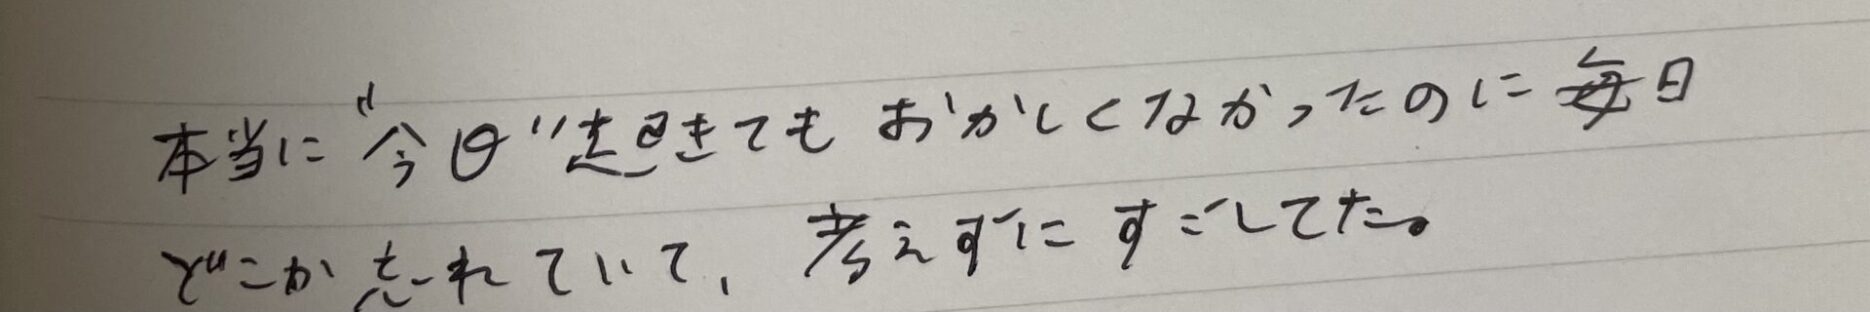 本当に"今日"起きてもおかしくなかったのに毎日
どこか忘れていて、考えずにすごしてた。